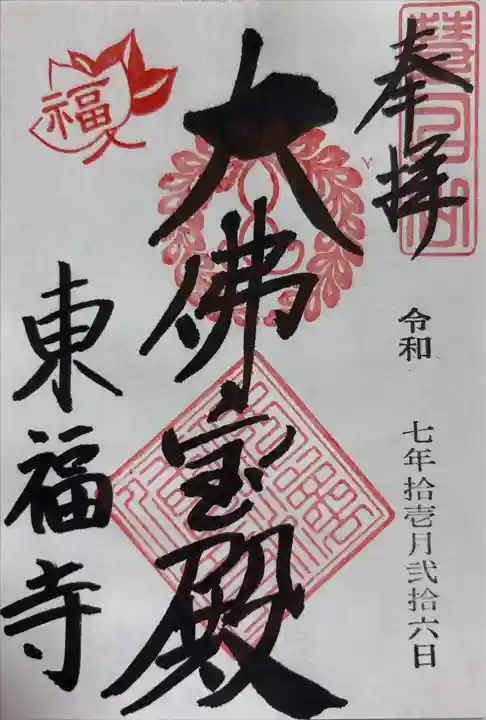 奉拝
令和 七年拾壱月弐拾六日
大佛宝殿
福
東福寺